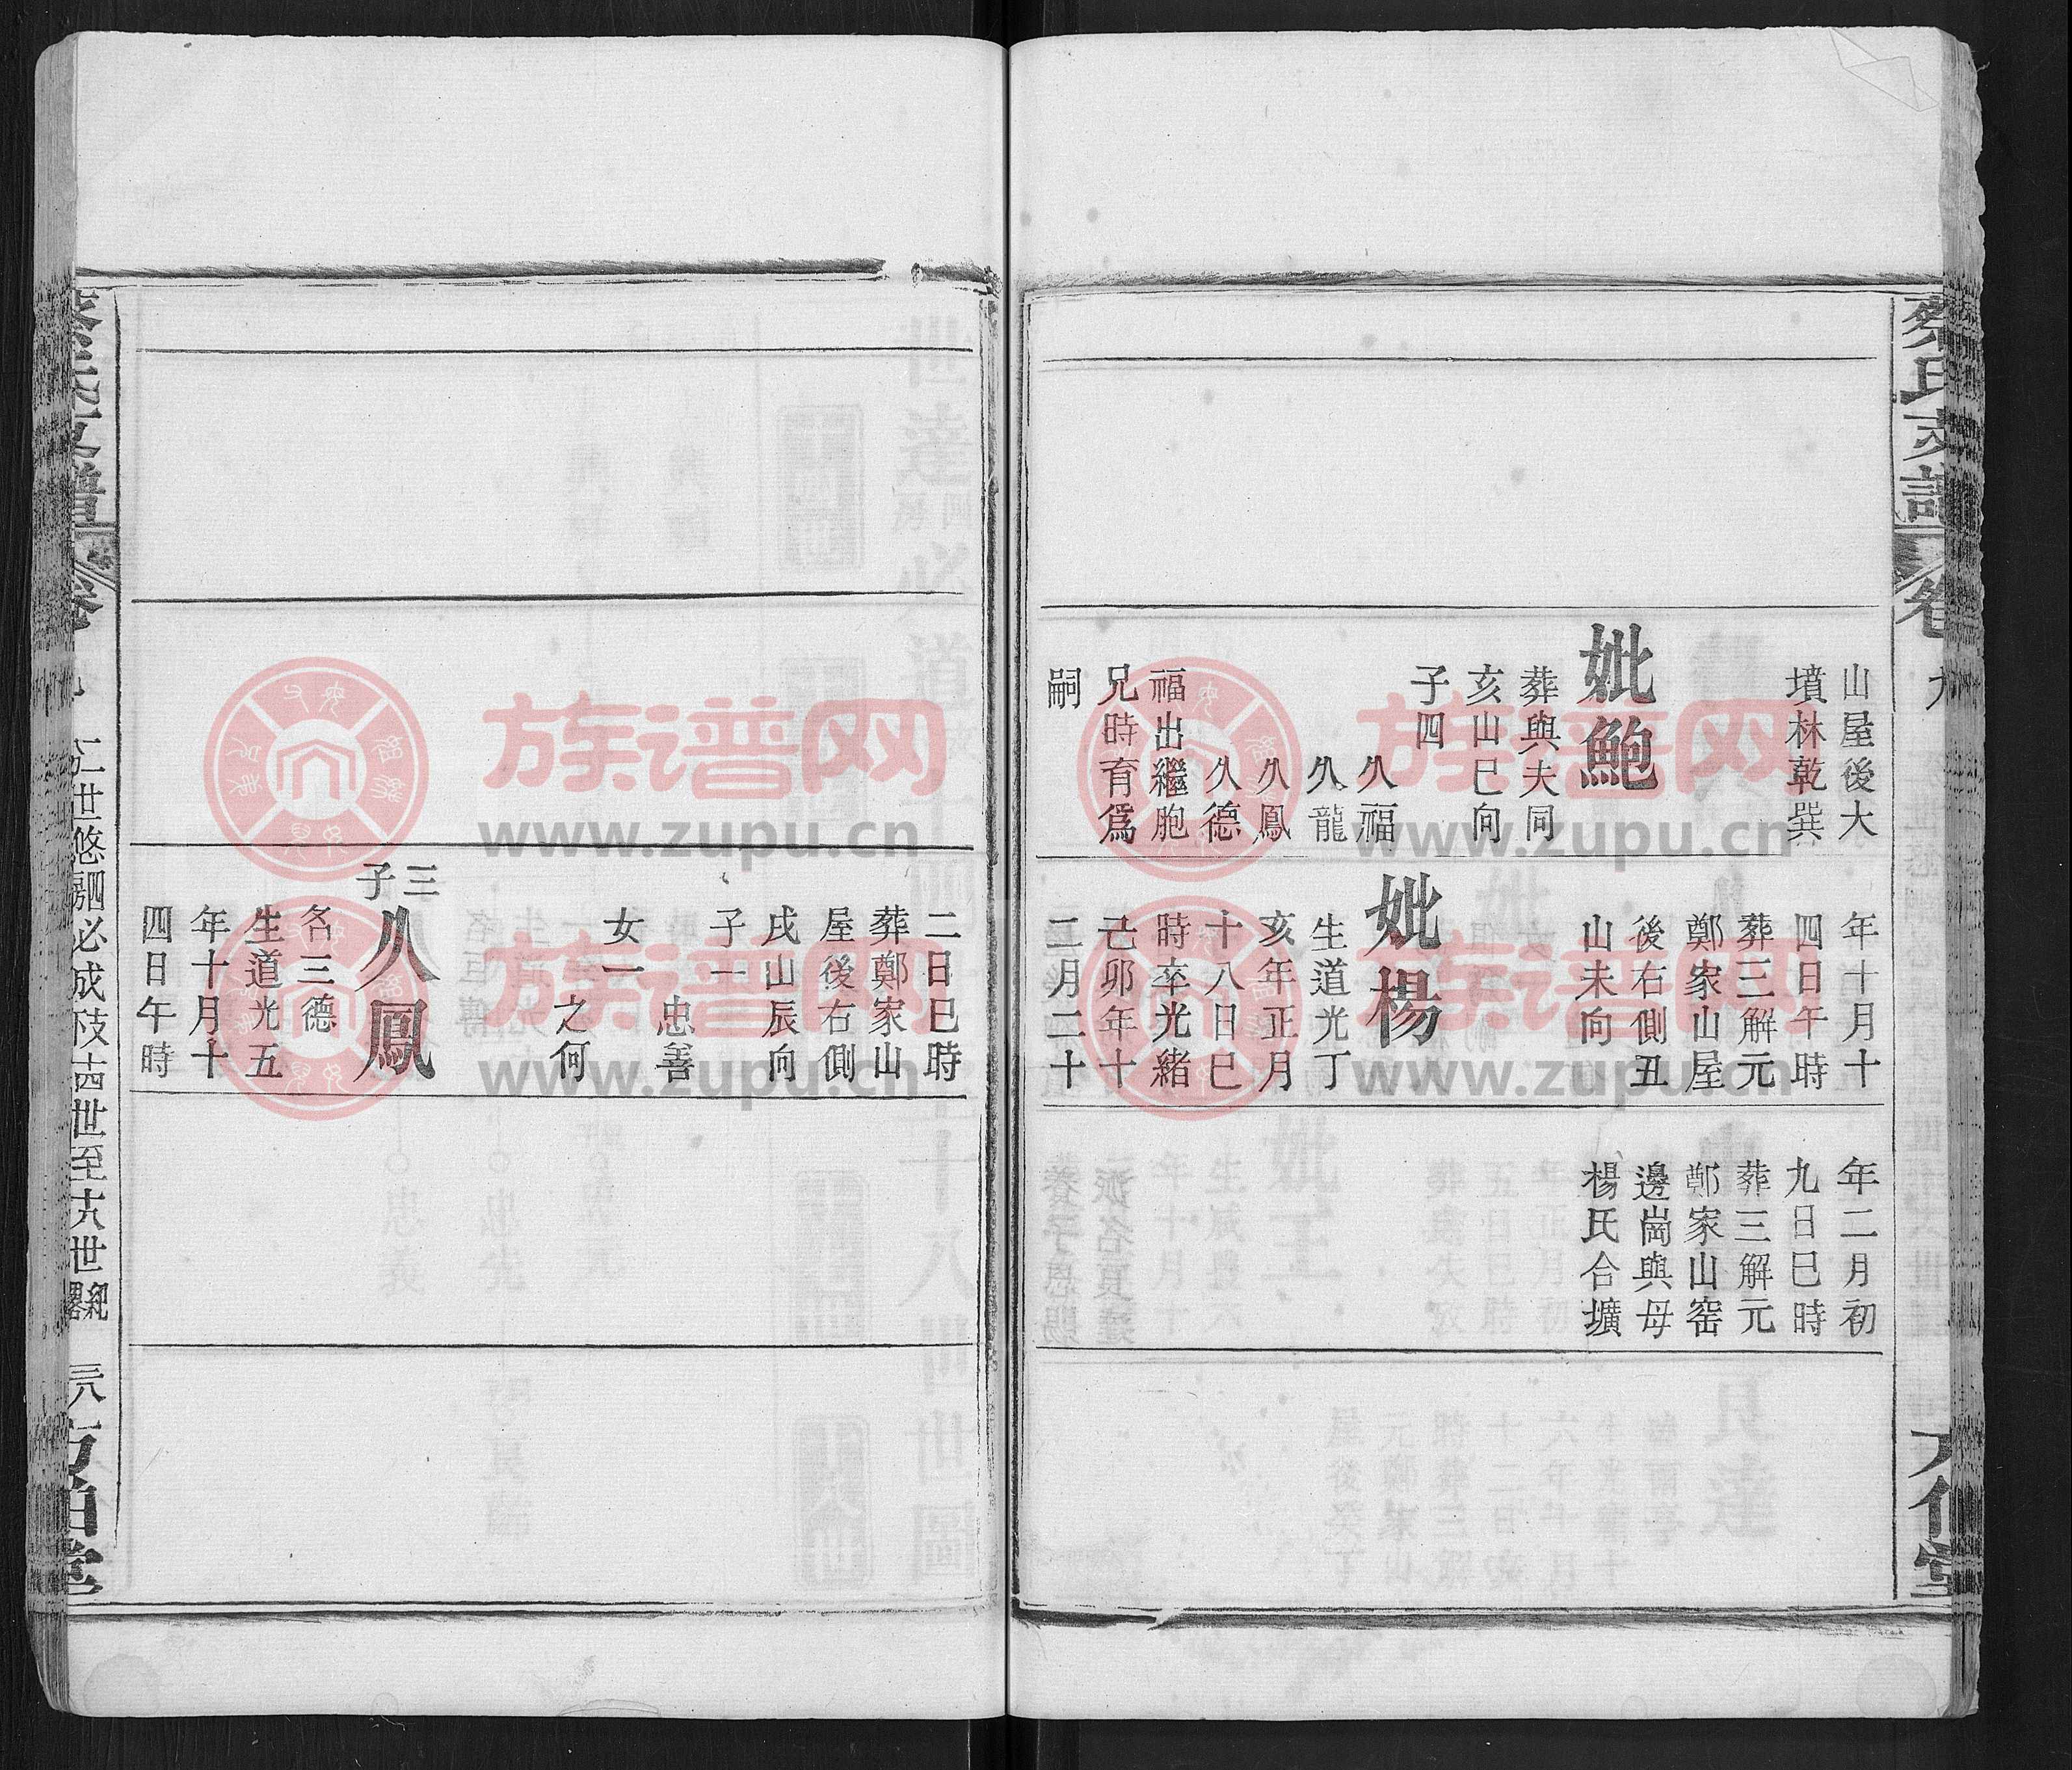 蔡氏支譜
卷
九
山屋後大
墳林乾巽
妣鮑
葬與夫同
亥山巳向
子四
久福
久龍
久鳳
久德
福出繼胞
兄時育爲
嗣
年十月十
四日午時
葬三解元
鄭家山屋
後右側丑
山未向
妣楊
生道光丁
亥年正月
十八日巳
時卒光緒
己卯年十
二月二十
年二月初
九日巳時
葬三解元
鄭家山窑
邊崗與母
楊氏合壙
二日巳時
葬鄭家山
屋後右側
戌山辰向
子一
忠善
女一
之何
三子
久鳳
名三德
生道光五
年十月十
四日午時
世悠嗣必成房十四世至十八世紀畧
三八
堂
族谱网
www.zupu.cn
族谱网
www.zupu.cn
族谱网
www.zupu.cn
族谱网
www.zupu.cn